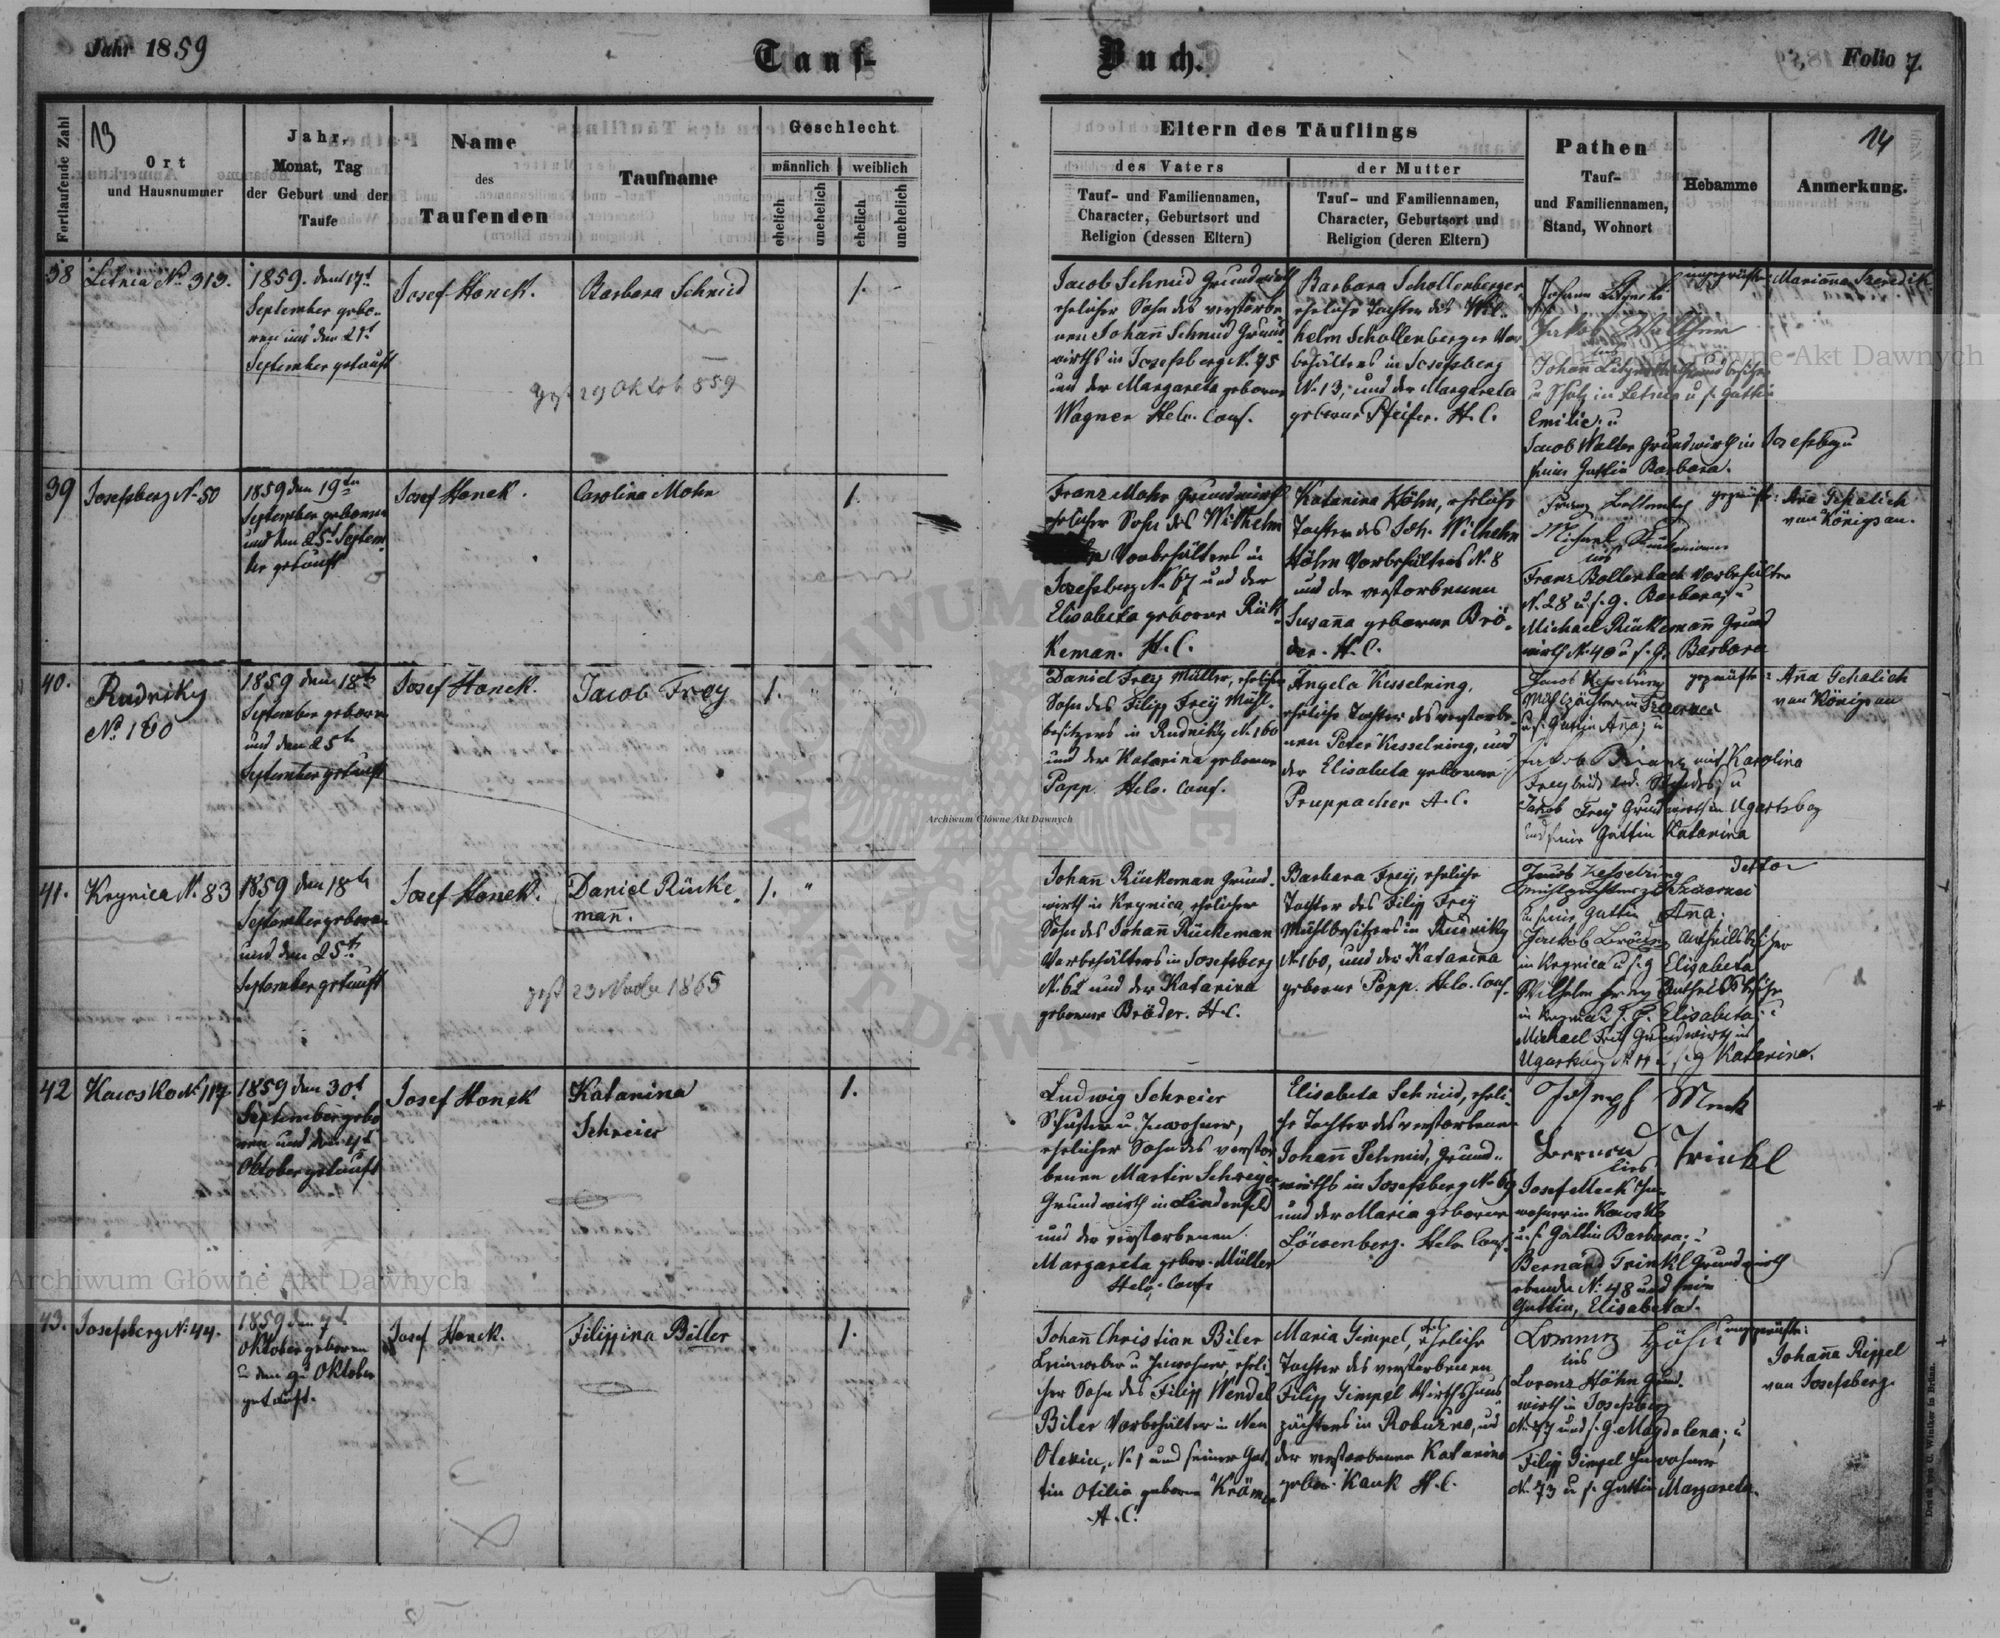 Jahr 1859
Tauf-
Buch.
Folio 7.
Fortlaufende Zahl
13
Ort
und Hausnummer
Jahr,
Monat, Tag
der Geburt und der
Taufe
Name
des
Taufenden
Taufname
Geschlecht
männlich
weiblich
ehelich
unehelich
ehelich
unehelich
Eltern des Täuflings
des Vaters
Tauf- und Familiennamen,
Character, Geburtsort und
Religion (dessen Eltern)
der Mutter
Tauf- und Familiennamen,
Character, Geburtsort und
Religion (deren Eltern)
Pathen
Tauf-
und Familiennamen,
Stand, Wohnort
Hebamme
14
Anmerkung.
38
Letnia No 313.
1859. den 17t
September gebo-
ren und den 21t
September getauft
Josef Honek.
Barbara Schmid
gest 29 Oktob 859
1.
Jacob Schmid Grundwirth
ehelicher Sohn des verstorbe-
nen Johann Schmid Grund-
wirths in Josefsberg N. 75
und der Margareta geborne
Wagner Helv. Conf.
Barbara Schollenberger
eheliche Tochter des Wil-
helm Schollenberger Vor-
behälters in Josefsberg
N. 13; und der Margareta
geborne Pfeifer. H. C.
Emilie; u
Jacob Walter Grundwirth in Josefsberg u
seine Gattin Barbara.
ungeprüfte: Marianna
39
Josefsberg N. 50
1859 den 19ten
September geboren
und den 25t Septem-
ber getauft
Josef Honek.
Carolina Mohr
1.
Franz Mohr Grundwirth
ehelicher Sohn des Wilhelm
Vorbehälters in
Josefsberg N. 67 und der
Elisabeta geborne Rük-
keman. H. C.
Katarina Höhn, eheliche
Tochter des Joh. Wilhelm
Höhn Vorbehälters N. 8
und der verstorbenen
Susanna geborne Brö-
der. H. C.
Franz Bollenbach Vorbehälter
N. 28 u. s. g. Barbara; u
Michael Rückemann Grund
wirth N. 40 u s. g. Barbara
geprüfte: Anna Gehalich
von Königsau.
40.
Rudniky
No 160
1859 den 18ten
September geboren
und den 25t
September getauft
Josef Honek.
Jacob Frey
1.
Daniel Frey Müller, ehelicher
Sohn des Filipp Frey Mühl-
besitzers in Rudniky N. 160
und der Katarina geborene
Popp. Helv. Conf.
Angela Kesselring,
eheliche Tochter des verstorbe-
nen Peter Kesselring, und
der Elisabeta geborne
Pruppacher A. C.
u. s. Gattin Anna; u
Jakob Frey Grundwirth in Ugartsberg
und seine Gattin Katarina
geprüfte: Anna Gehalich
von Königsau
41.
Krynica N. 83
1859 den 18t
September geboren
und den 25t
September getauft
Josef Honek.
Daniel Rücke-
mann.
gest 23 1865
1.
Johann Rückeman Grund-
wirth in Krynica, ehelicher
Sohn des Johann Rückeman
Vorbehälters in Josefsberg
N. 62 und der Katarina
geborene Bröder. H. C.
Barbara Frey, eheliche
Tochter des Filipp Frey
Mühlbesitzers in Rudniky
N. 160, und der Katarina
geborne Popp. Helv. Conf.
u seine Gattin Anna;
in Krynica u s. g Elisabeta
in Krynica u s. g. Elisabeta; u
Michael Frey Grundwirth in
Ugartsberg N. 11 u s. g Katarina.
detto
42
Kawsko N. 117
1859 den 30t
September gebo-
ren und den 4t
Oktober getauft
Josef Honek
Katarina
Schreier
1.
Ludwig Schreier
Schuster u. Inwohner,
ehelicher Sohn des verstor-
benen Martin Schreyer
Grundwirth in Lindenfeld
und der verstorbenen
Margareta gebor. Müller
Helv. Conf.
Elisabeta Schmid, eheli-
che Tochter des verstorbenen
Johann Schmid, Grund-
wirths in Josefsberg N. 69
und der Maria geborne
Löwenberg. Helv. Conf.
Joseph Meck
Bernard Trinkl
lies
Josef Meck In-
wohner in Kawsko
u. s. Gattin Barbara; u
Bernard Trinkl Grundwirth
ebenda N. 48 und seine
Gattin, Elisabeta.
43.
Josefsberg N. 44.
1859 den 7t
Oktober geboren
u den 9t Oktober
getauft.
Josef Honek.
Filippina Biller
1.
Johann Christian Biler
Leinweber u Inwohner, eheli-
cher Sohn des Filipp Wendel
Biler Vorbehälter in Neu
Olexic, N. 1 und seiner Gat-
tin Otilia geborne Krämer
A. C.
Maria Gimpel, eheliche
Tochter des verstorbenen
Filipp Gimpel Wirthshaus-
pächters in Roburno, und
der verstorbenen Katarina
gebor. Kauk H. C.
Lorenz Höhn
lies
Lorenz Höhn Grund-
wirth in Josefsberg
N. 47 und s. g. Magdalena; u
Filipp Gimpel Inwohner
N. 73 u s. Gattin Margareta.
ungeprüfte:
Johanna Rippel
von Josefsberg.
Druck von C. Winiker in Brünn.
Archiwum Główne Akt Dawnych
Archiwum Główne Akt Dawnych
Archiwum Główne Akt Dawnych